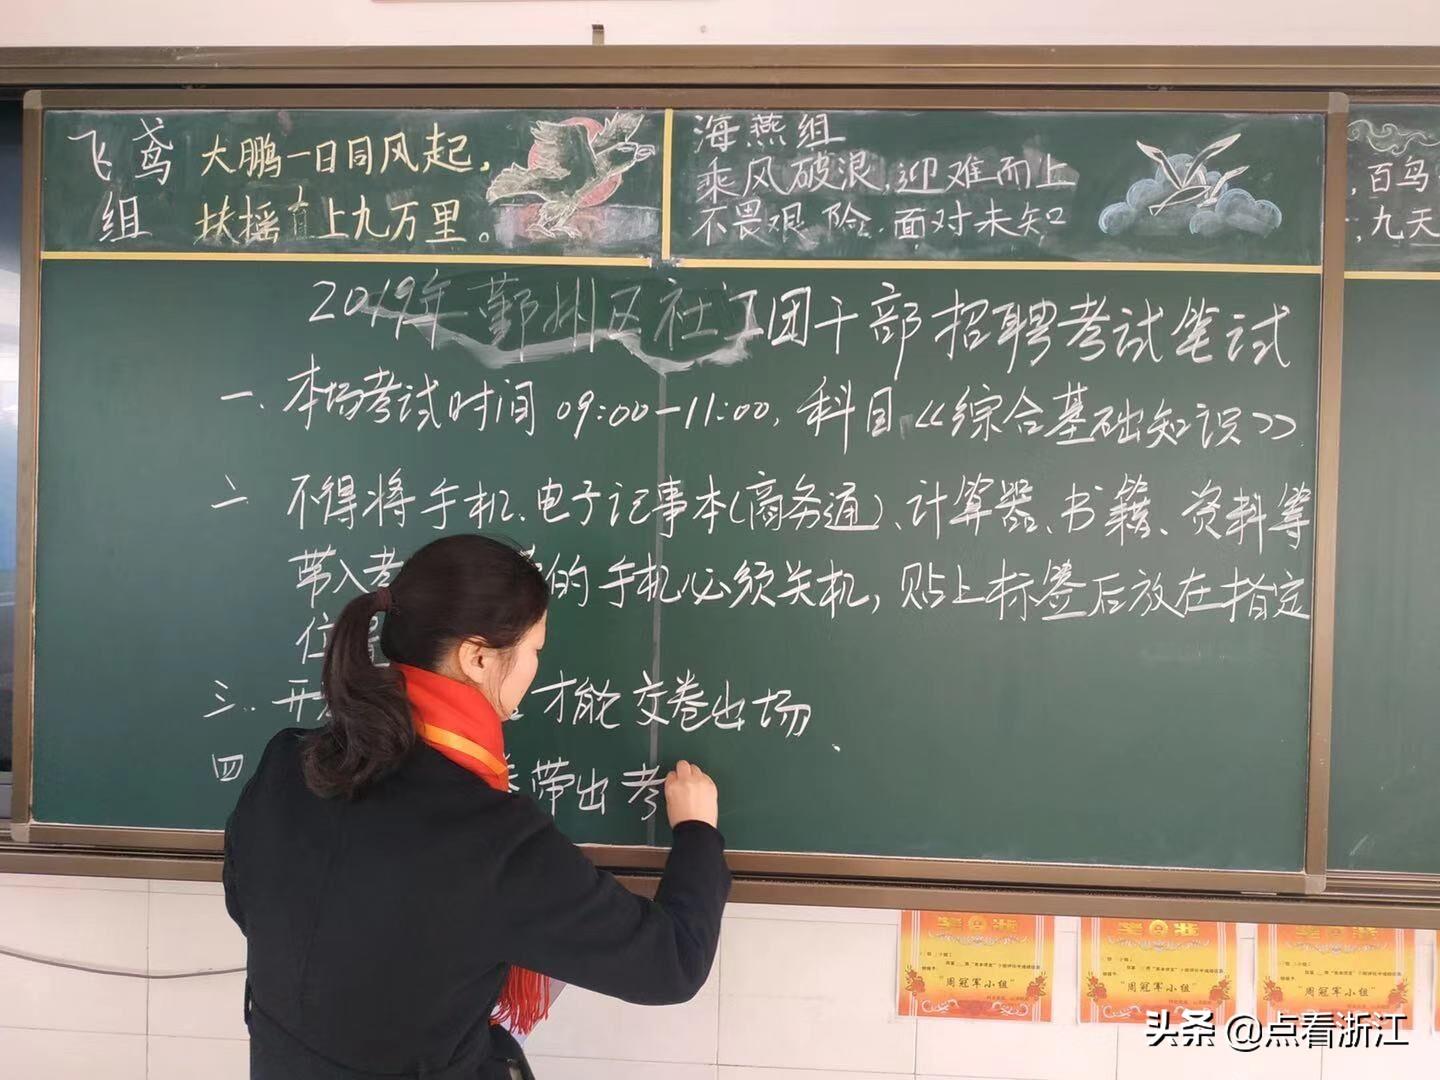 飞鸢
组
大鹏一日同风起，
扶摇直上九万里。
海燕组
乘风破浪，迎难而上
不畏艰险，面对未知
百鸟
九天
2019年鄞州区社工团干部招聘考试笔试
一、本场考试时间09:00—11:00，科目《综合基础知识》
二 不得将手机、电子记事本(商务通)、计算器、书籍、资料等
带入考 的手机必须关机，贴上标签后放在指定
位置
三、开 才能交卷出场
四 卷带出考
奖状
"周冠军小组"
奖状
"周冠军小组"
奖状
"周冠军小组"
头条 @点看浙江